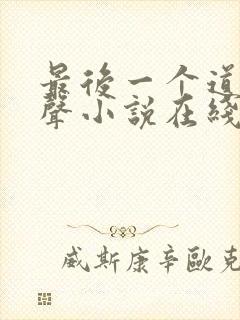 最後一个道
聲小説在綫
威斯康辛歐克